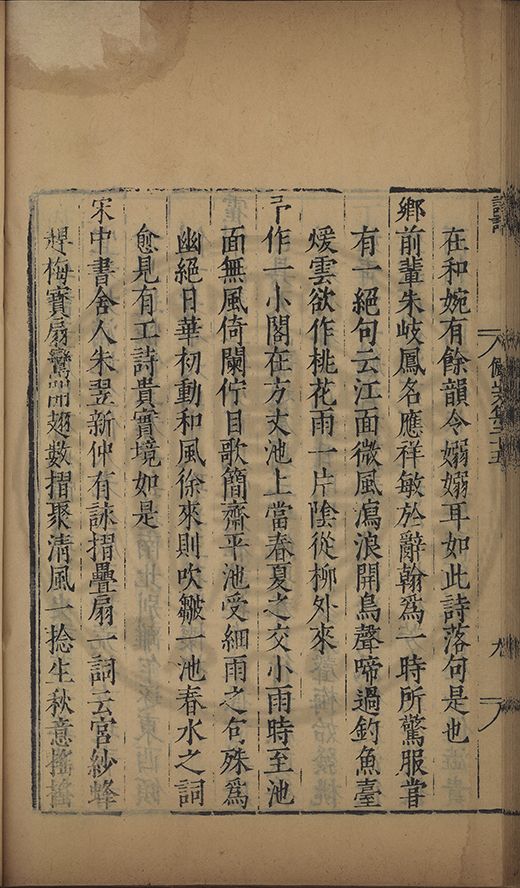 在和婉有餘韻令嫋嫋耳如此詩落句是也
鄉前輩朱岐鳳名應祥敏於辭翰爲一時所驚服甞
有一絕句云江面微風瀉浪開鳥聲啼過釣魚臺
煖雲欲作桃花雨一片陰從柳外來
予作一小閣在方丈池上當春夏之交小雨時至池
面無風倚闌佇目歌簡齋平池受細雨之句殊爲
幽絕日華初動和風徐來則吹皺一池春水之詞
愈見有工詩貴實境如是
宋中書舍人朱翌新仲有詠摺疊扇一詞云宮紗蜂
趕梅寶扇鸞開翅數摺聚清風一捻生秋意搖搖